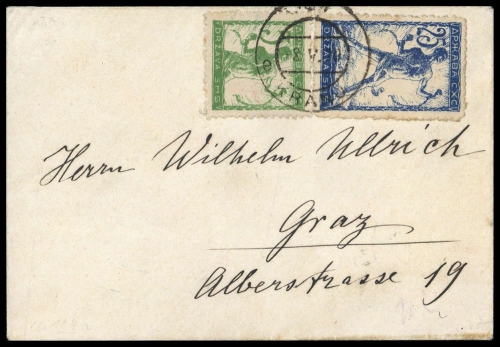 ДРЖАВА СХС
25
DRŽAVA SHS
Herrn Wilhelm Ullrich
Graz
Alberstrasse 19